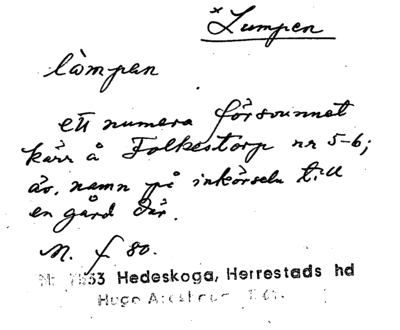 × Lumpen
làmpan
ett numera försvunnet
kärr å Folkestorp nr 5-6;
äv. namn på inkörseln till
en gård där.
M. f 80.
Hedeskoga, Herrestads hd
Hugo